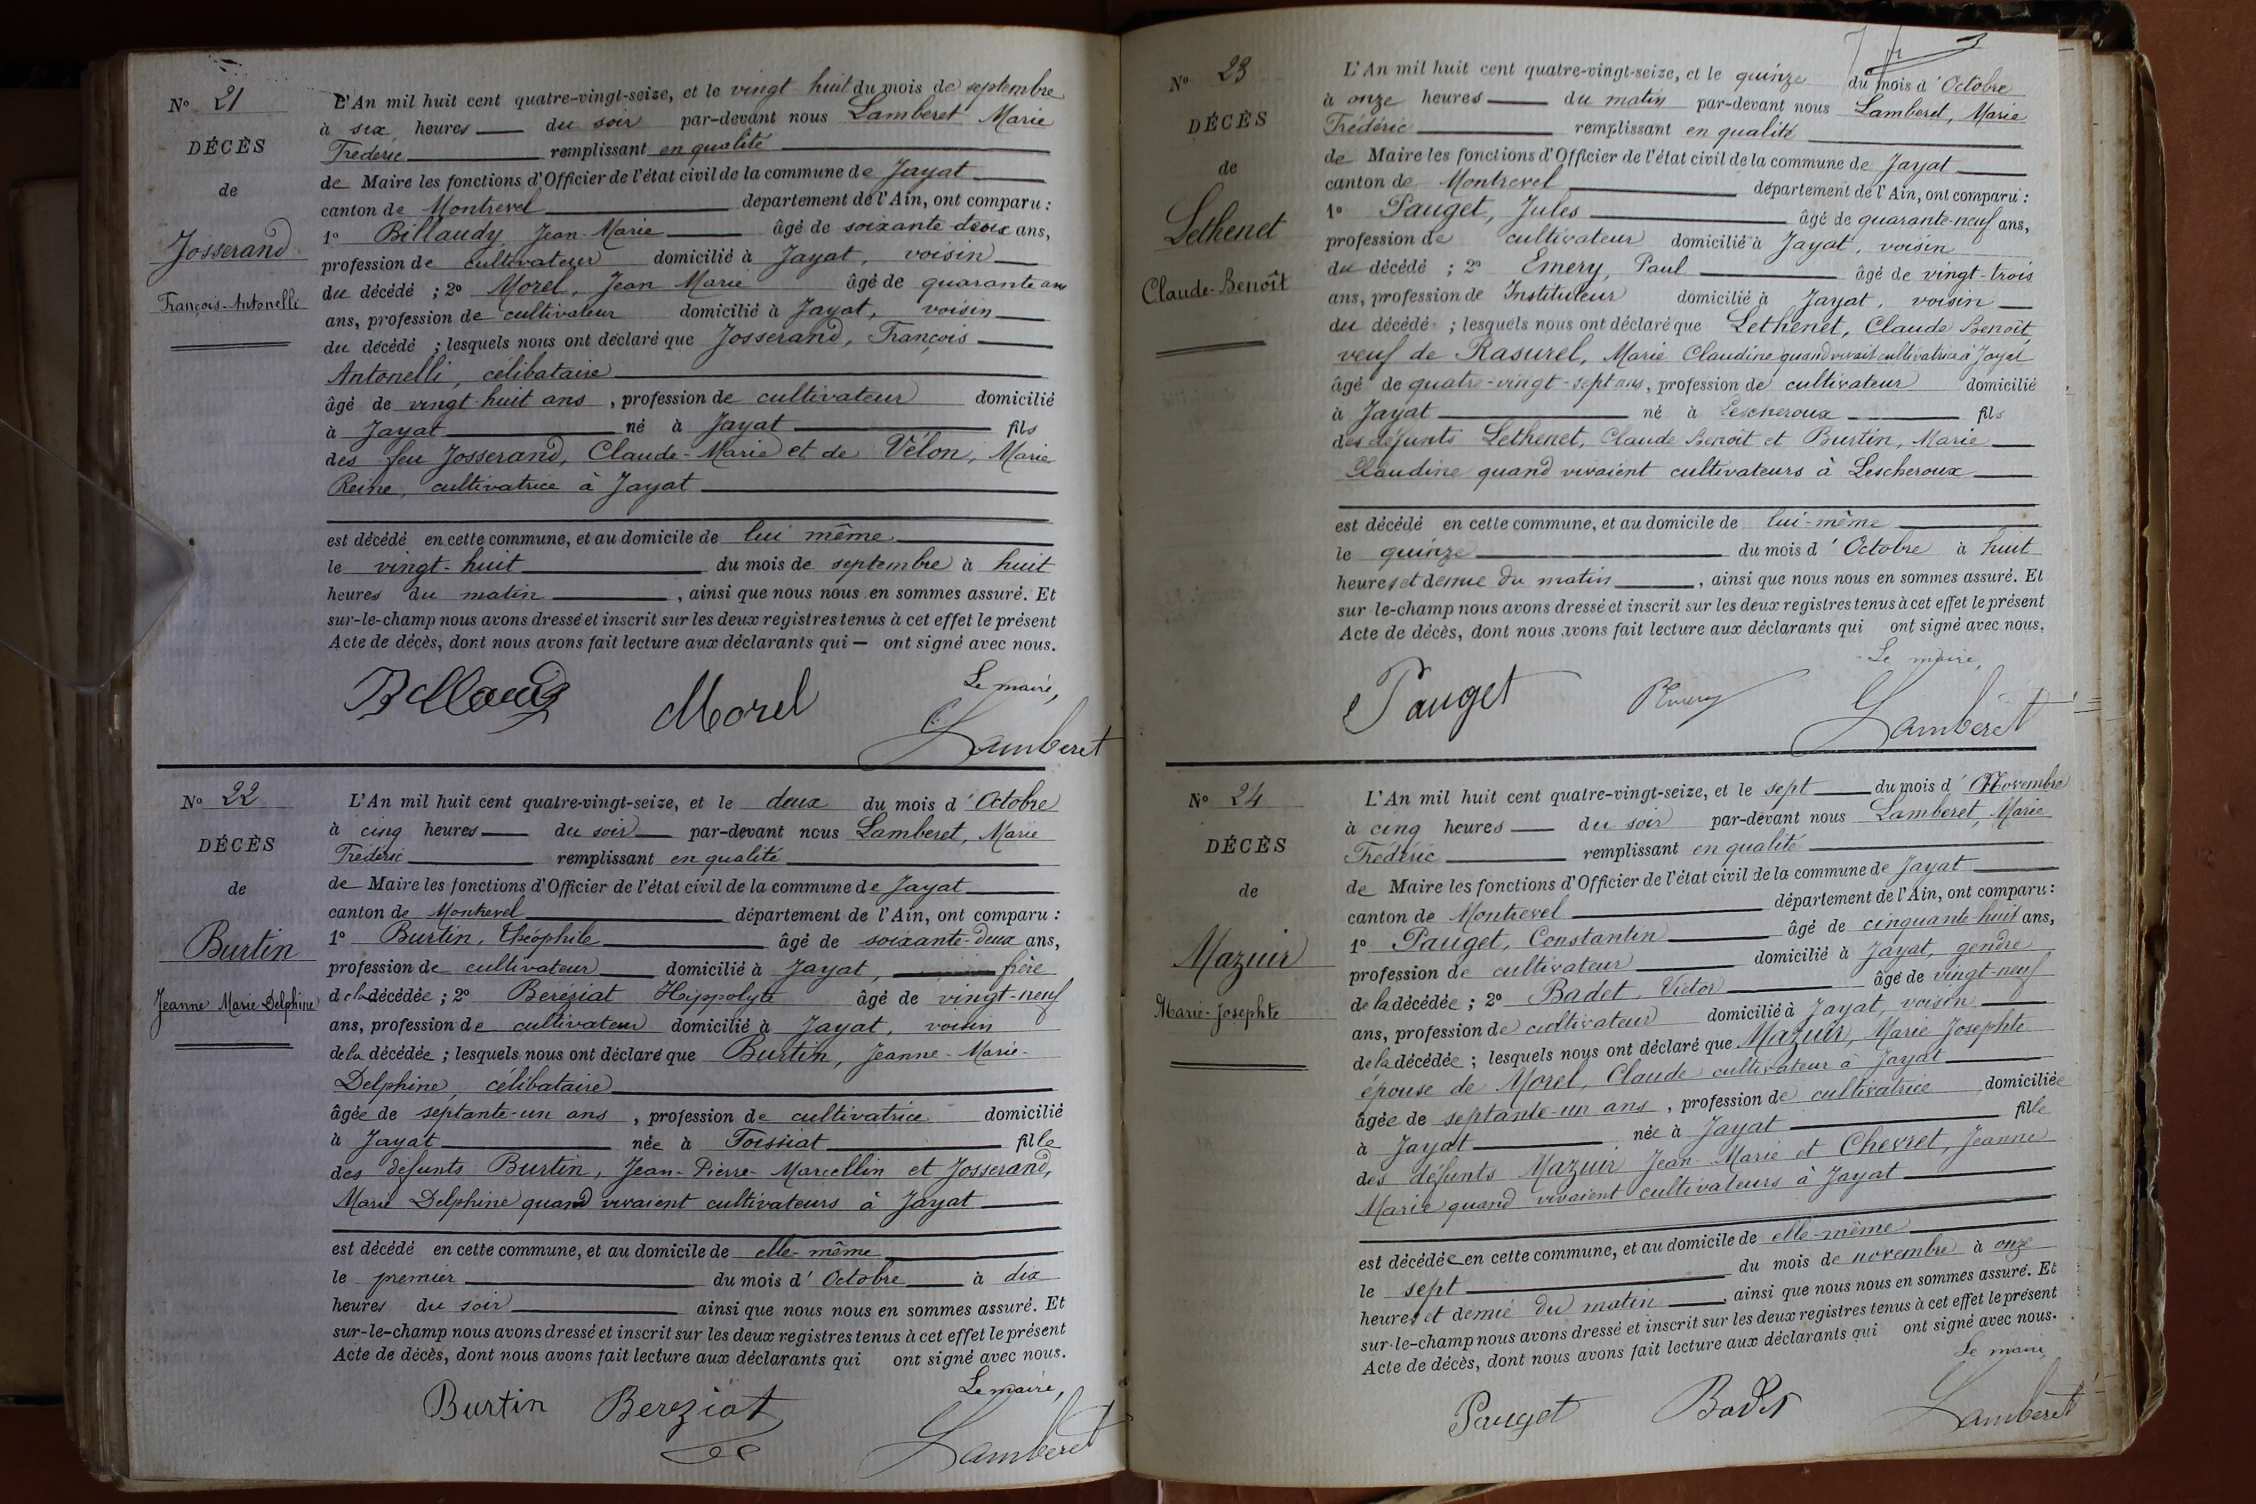 N° 21
DÉCÈS
de
Josserand
François-Antonelli
L'An mil huit cent quatre-vingt-seize, et le vingt-huit du mois de septembre
à six heures du soir par-devant nous Lamberet Marie
Frédéric remplissant en qualité
de Maire les fonctions d'Officier de l'état civil de la commune de Jayat
canton de Montrevel département de l'Ain, ont comparu :
1° Billaudy Jean-Marie âgé de soixante deux ans,
profession de cultivateur domicilié à Jayat, voisin
du décédé ; 2° Morel, Jean Marie âgé de quarante ans
ans, profession de cultivateur domicilié à Jayat, voisin
du décédé ; lesquels nous ont déclaré que Josserand, François
Antonelli, célibataire
âgé de vingt-huit ans, profession de cultivateur domicilié
à Jayat né à Jayat fils
des feu Josserand, Claude-Marie et de Vélon, Marie
Reine, cultivatrice à Jayat
est décédé en cette commune, et au domicile de lui même
le vingt-huit du mois de septembre à huit
heures du matin, ainsi que nous nous en sommes assuré. Et
sur-le-champ nous avons dressé et inscrit sur les deux registres tenus à cet effet le présent
Acte de décès, dont nous avons fait lecture aux déclarants qui — ont signé avec nous.
Le maire,
Billaudy Morel Lamberet
N° 22
DÉCÈS
de
Burtin
Jeanne Marie Delphine
L'An mil huit cent quatre-vingt-seize, et le deux du mois d'Octobre
à cinq heures du soir par-devant nous Lamberet, Marie
Frédéric remplissant en qualité
de Maire les fonctions d'Officier de l'état civil de la commune de Jayat
canton de Montrevel département de l'Ain, ont comparu :
1° Burtin, Théophile âgé de soixante-deux ans,
profession de cultivateur domicilié à Jayat, frère
de la décédée ; 2° Beréziat Hippolyte âgé de vingt-neuf
ans, profession de cultivateur domicilié à Jayat, voisin
de la décédée ; lesquels nous ont déclaré que Burtin, Jeanne-Marie-
Delphine, célibataire
âgée de septante-un ans, profession de cultivatrice domicilié
à Jayat née à Foissiat fille
des défunts Burtin, Jean-Pierre-Marcellin et Josserand,
Marie Delphine quand vivaient cultivateurs à Jayat
est décédé en cette commune, et au domicile de elle-même
le premier du mois d'Octobre à dix
heures du soir ainsi que nous nous en sommes assuré. Et
sur-le-champ nous avons dressé et inscrit sur les deux registres tenus à cet effet le présent
Acte de décès, dont nous avons fait lecture aux déclarants qui ont signé avec nous.
Le maire,
Burtin Bereziat Lamberet
N° 23
DÉCÈS
de
Lethenet
Claude-Benoît
L'An mil huit cent quatre-vingt-seize, et le quinze du mois d'Octobre
à onze heures du matin par-devant nous Lamberet, Marie
Frédéric remplissant en qualité
de Maire les fonctions d'Officier de l'état civil de la commune de Jayat
canton de Montrevel département de l'Ain, ont comparu :
1° Pauget, Jules âgé de quarante-neuf ans,
profession de cultivateur domicilié à Jayat, voisin
du décédé ; 2° Emery, Paul âgé de vingt-trois
ans, profession de Instituteur domicilié à Jayat, voisin
du décédé ; lesquels nous ont déclaré que Lethenet, Claude Benoît
veuf de Rasurel, Marie Claudine quand vivait cultivatrice à Jayat
âgé de quatre-vingt-sept ans, profession de cultivateur domicilié
à Jayat né à Lescheroux fils
des défunts Lethenet, Claude Benoît et Burtin, Marie
Claudine quand vivaient cultivateurs à Lescheroux
est décédé en cette commune, et au domicile de lui-même
le quinze du mois d'Octobre à huit
heures et demie du matin, ainsi que nous nous en sommes assuré. Et
sur-le-champ nous avons dressé et inscrit sur les deux registres tenus à cet effet le présent
Acte de décès, dont nous avons fait lecture aux déclarants qui ont signé avec nous.
Le maire,
Pauget PEmery Lamberet
N° 24
DÉCÈS
de
Mazuir
Marie-Josephte
L'An mil huit cent quatre-vingt-seize, et le sept du mois d'Novembre
à cinq heures du soir par-devant nous Lamberet, Marie
Frédéric remplissant en qualité
de Maire les fonctions d'Officier de l'état civil de la commune de Jayat
canton de Montrevel département de l'Ain, ont comparu :
1° Pauget, Constantin âgé de cinquante-huit ans,
profession de cultivateur domicilié à Jayat, gendre
de la décédée ; 2° Badet, Victor âgé de vingt-neuf
ans, profession de cultivateur domicilié à Jayat, voisin
de la décédée ; lesquels nous ont déclaré que Mazuir, Marie Josephte
épouse de Morel, Claude cultivateur à Jayat
âgée de septante-un ans, profession de cultivatrice domiciliée
à Jayat née à Jayat fille
des défunts Mazuir Jean-Marie et Chevret, Jeanne
Marie quand vivaient cultivateurs à Jayat
est décédée en cette commune, et au domicile de elle-même
le sept du mois de novembre à onze
heures et demie du matin, ainsi que nous nous en sommes assuré. Et
sur-le-champ nous avons dressé et inscrit sur les deux registres tenus à cet effet le présent
Acte de décès, dont nous avons fait lecture aux déclarants qui ont signé avec nous.
Le maire,
Pauget Badet Lamberet